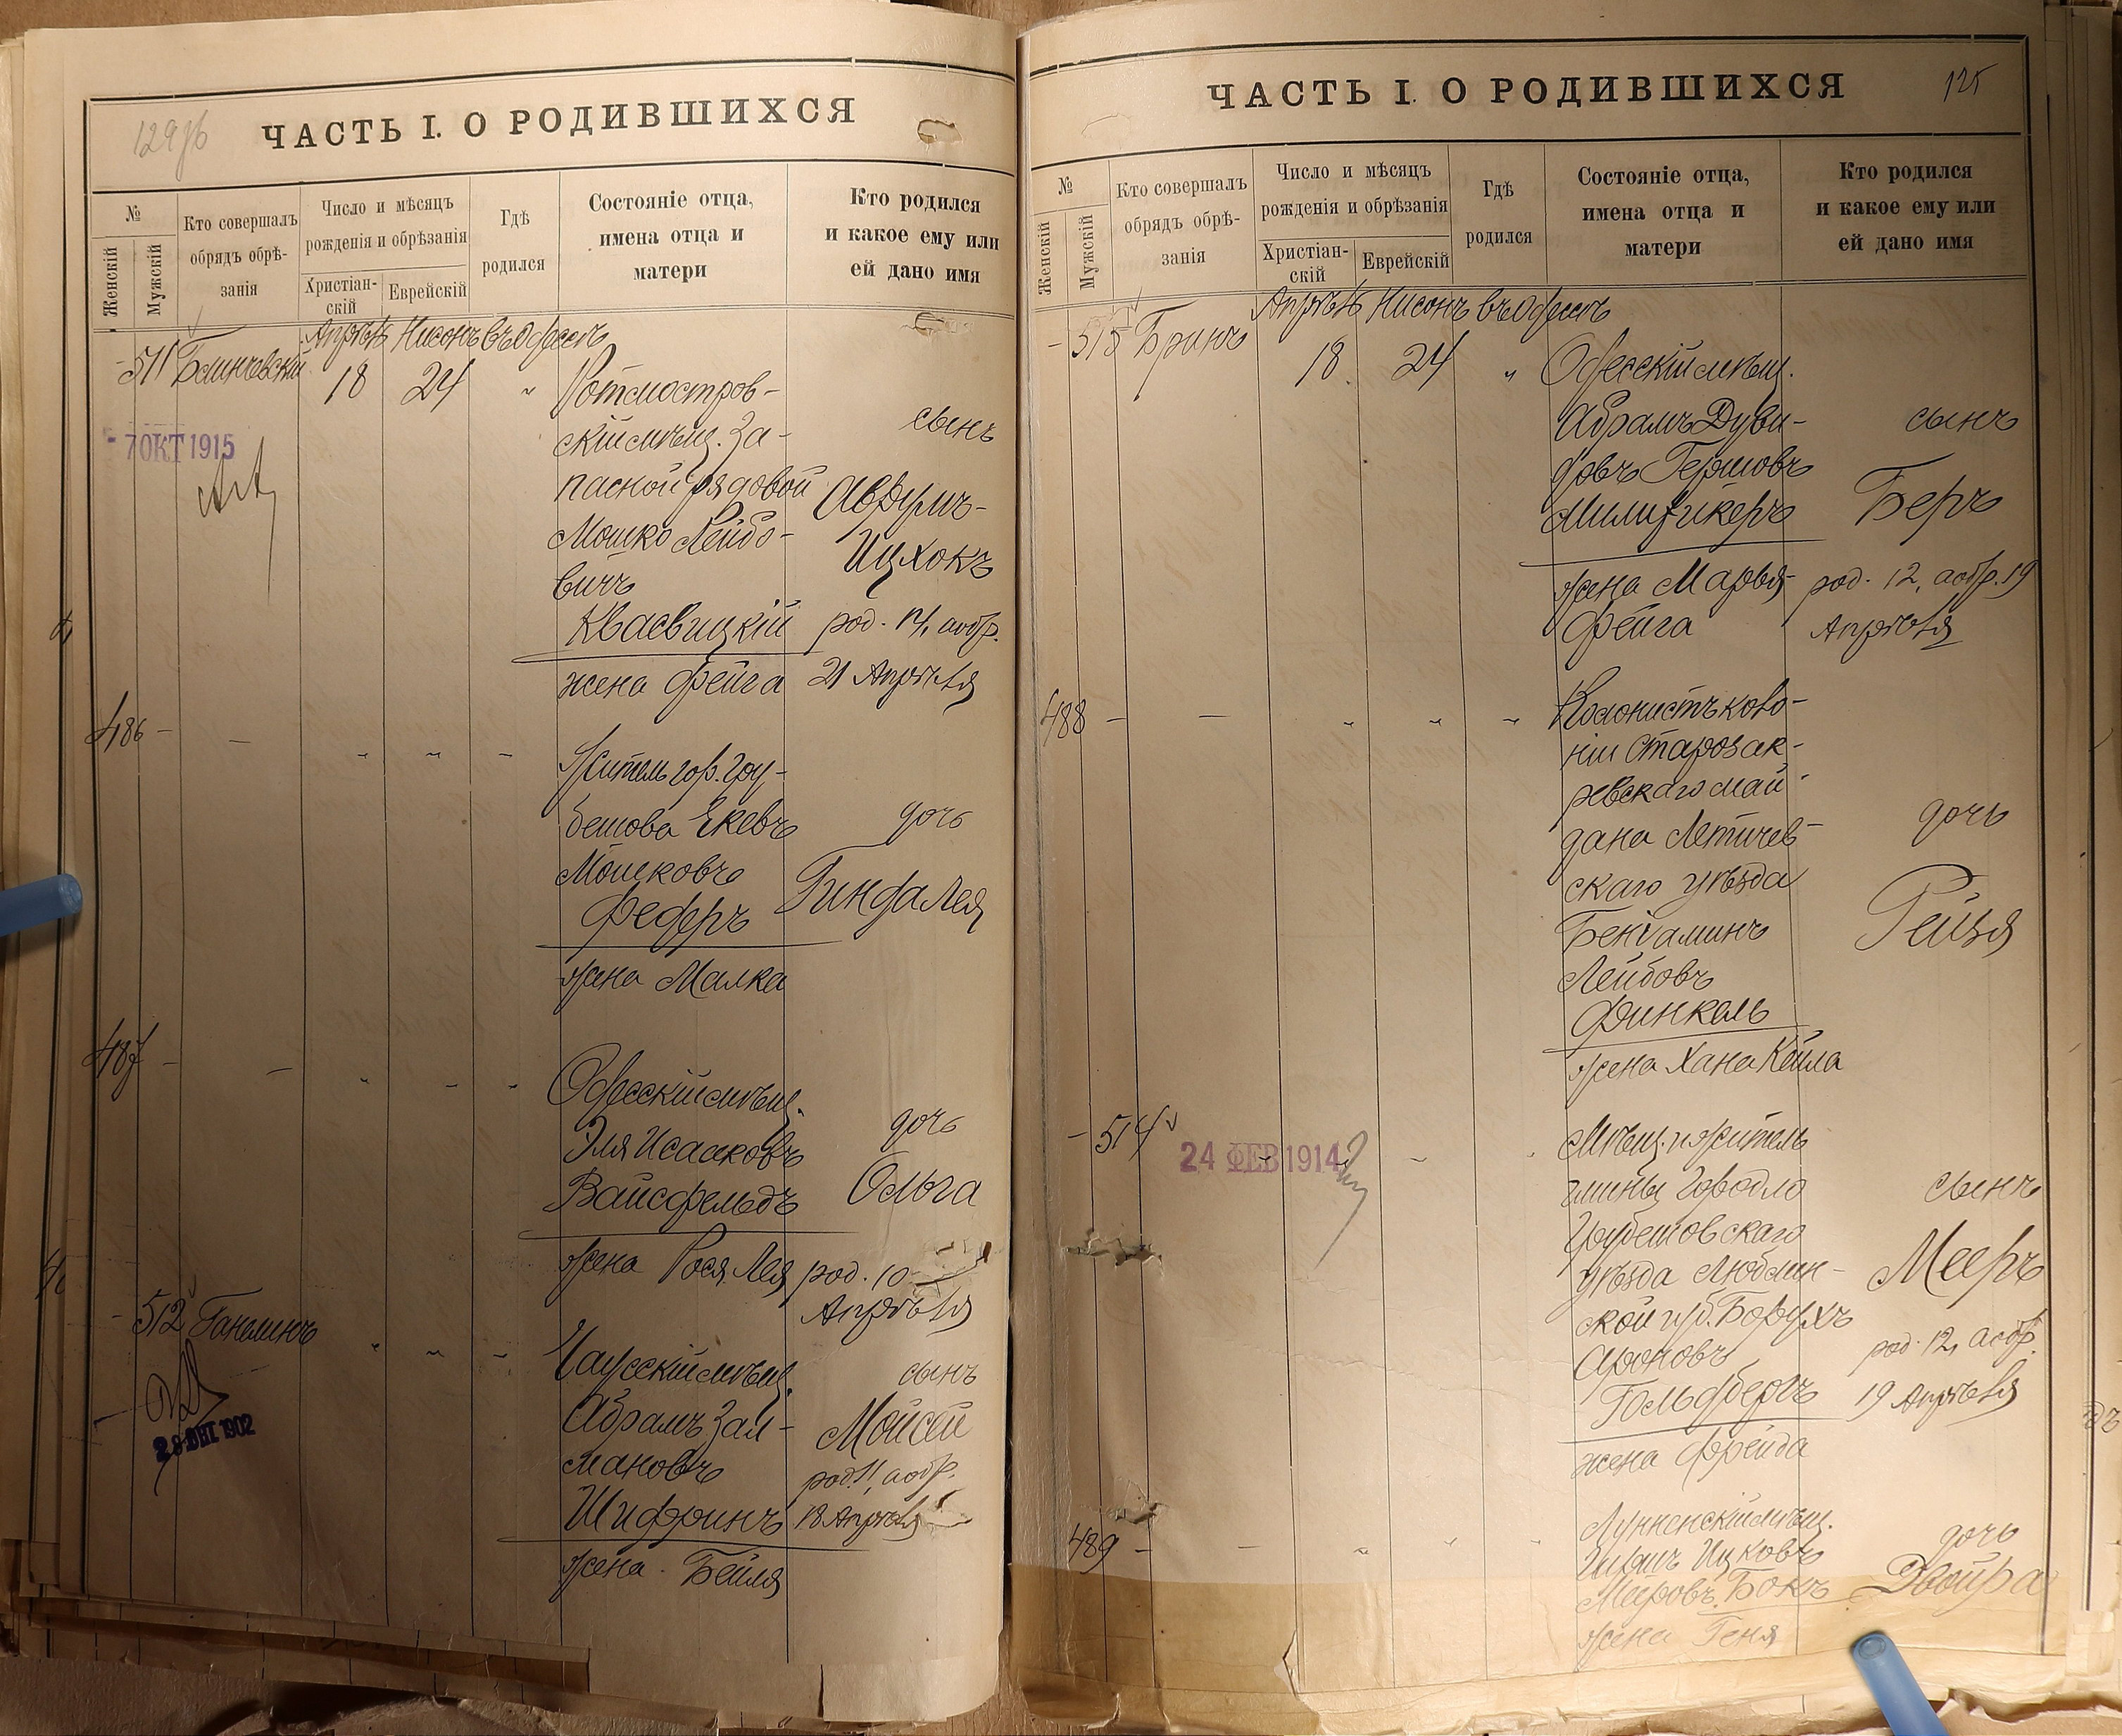 129об
ЧАСТЬ I. О РОДИВШИХСЯ
№
Женскій
Мужскій
Кто совершалъ
обрядъ обрѣ-
занія
Число и мѣсяцъ
рожденія и обрѣзанія
Христіан-
скій
Еврейскій
Гдѣ
родился
Состояніе отца,
имена отца и
матери
Кто родился
и какое ему или
ей дано имя
Апрѣль Нисонъ въ Одессѣ
511
18 24 "
7 ОКТ 1915
Ротмистров-
скій мѣщ. За-
пасной рядовой
Мошко Лейбо-
вичъ
Квасвицкій
жена Фейга
сынъ
Авдумъ-
Ицхокъ
род. 14, а обр.
21 Апрѣля
486 - - " " "
Житель гор. Гру-
бешова Екевъ
Мошковъ
Федеръ
жена Малка
дочь
Гинда Лея
487 - - " " "
Одесскій мѣщ.
Эля Исааковъ
Вайсфельдъ
жена Рося Лея
дочь
Ольга
род. 10
Апрѣля
- 512 Ганелинъ " " "
1902
Чаусскій мѣщ.
Абрамъ Зал-
мановъ
Шифринъ
жена Бейля
сынъ
Мойсей
род 11, а обр.
18 Апрѣля
125
ЧАСТЬ I. О РОДИВШИХСЯ
№
Женскій
Мужскій
Кто совершалъ
обрядъ обрѣ-
занія
Число и мѣсяцъ
рожденія и обрѣзанія
Христіан-
скій
Еврейскій
Гдѣ
родился
Состояніе отца,
имена отца и
матери
Кто родился
и какое ему или
ей дано имя
Апрѣль Нисонъ въ Одессѣ
- 513 Бринъ
18 24 "
Одесскій мѣщ.
Абрамъ Дуви-
довъ Гершовъ
жена Марья-
Фейга
сынъ
Беръ
род. 12, а обр. 19
Апрѣля
488 - - " " "
Колонистъ коло-
ніи Старозак-
ревскаго май-
дана Летичев-
скаго уѣзда
Беніаминъ
Лейбовъ
Финкель
жена Хана Кейла
дочь
Рейзя
- 514
24 ФЕВ 1914
Мѣщ. и житель
гмины Городло
Грубешовскаго
уѣзда Люблин-
ской губ. Борухъ
Ароновъ
Гольдбергъ
жена Фрейда
сынъ
Мееръ
род. 12, а обр.
19 Апрѣля
489 - - " " "
Лунненскій мѣщ.
Ицковъ
Мееровъ Бокъ
жена Геня
дочь
Двойра